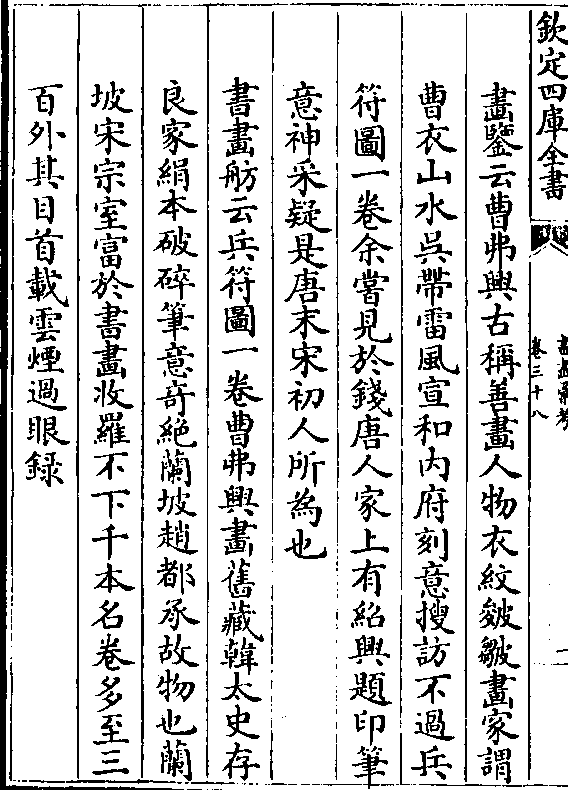 欽定四庫全書
卷三十八
畫鑒云曹弗興古稱善畫人物衣紋皴皺畫家謂
曹衣山水吳帶雷風宣和内府刻意搜訪不過兵
符圖一卷余嘗見於錢唐人家上有紹興題印筆
意神采疑是唐末宋初人所為也
書畫舫云兵符圖一卷曹弗興畫舊藏韓太史存
良家絹本破碎筆意竒絶蘭坡趙都承故物也蘭
坡宋宗室富於書畫收羅不下千本名卷多至三
百外其目首載雲煙過眼録